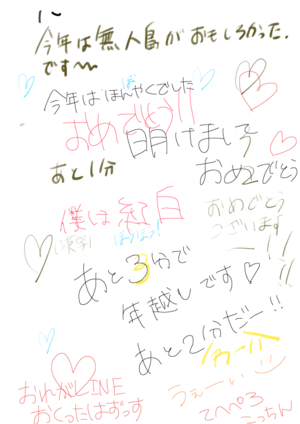 今年は無人島がおもしろかった。
です〜
今年はほんやくでした
おめでとう!!
明けまして
おめでとう
あと1分
僕は紅白
おめでとう
ございます
ー!!
あと3分で
年越しです♡
あと2分だー!!
わーい
うぇーい
おれがLINE
おくったはずっす
てへぺろ
こっちん